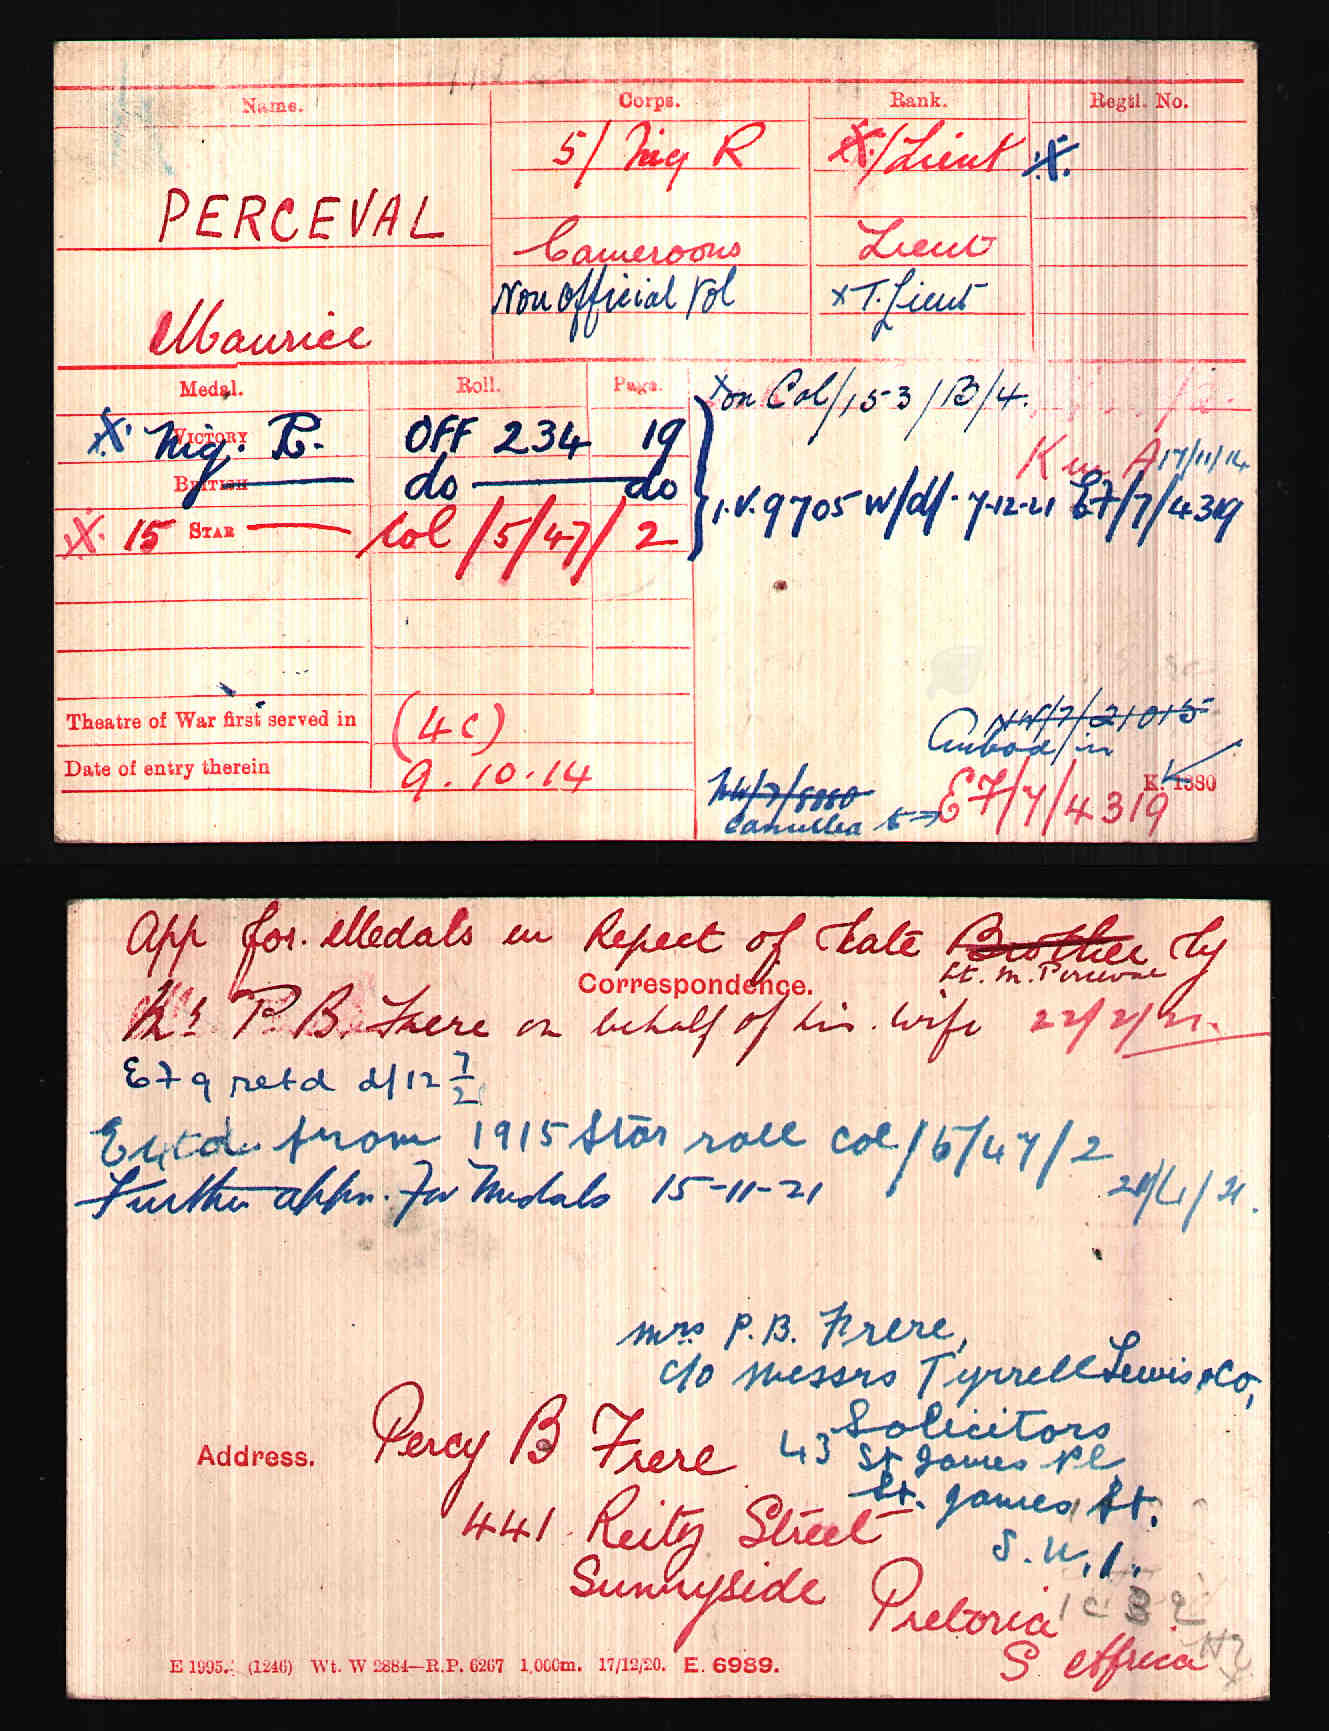 Name. Corps. Rank. Regtl. No.
5/ Nig R X/Lieut X.
PERCEVAL
Cameroons Lieut
Non Official Vol x T. Lieut
Maurice
Medal. Roll. Page.
X on Col/153/B/4.
X Victory Nig. R. OFF 234 19
K in A 17/11/14
British do do
I.V. 9705 w/d/- 7-12-21 E7/7/4319
X. 15 Star Col/5/47/2
Theatre of War first served in (4c)
NW/7/21015
Date of entry therein 9.10.14
K. 1380
NW/7/8880
cancelled E7/7/4319
App for. Medals in Repect of Late Brother by
Lt. M. Perceval
Correspondence.
P. B. Frere on behalf of his wife 22/2/21.
E79 retd d/12 7/2
Extd. from 1915 Star roll Col/5/47/2
Further appn. for Medals 15-11-21
Mrs P.B. Frere,
c/o Messrs Tyrrell Lewis & Co,
Solicitors
43 St James Pl
St. James St.
S.W.1.
Address. Percy B Frere
441 Reitz Street
Sunnyside Pretoria
S Africa
E 1995. (1246) Wt. W 2884—R.P. 6267 1,000m. 17/12/20. E. 6989.